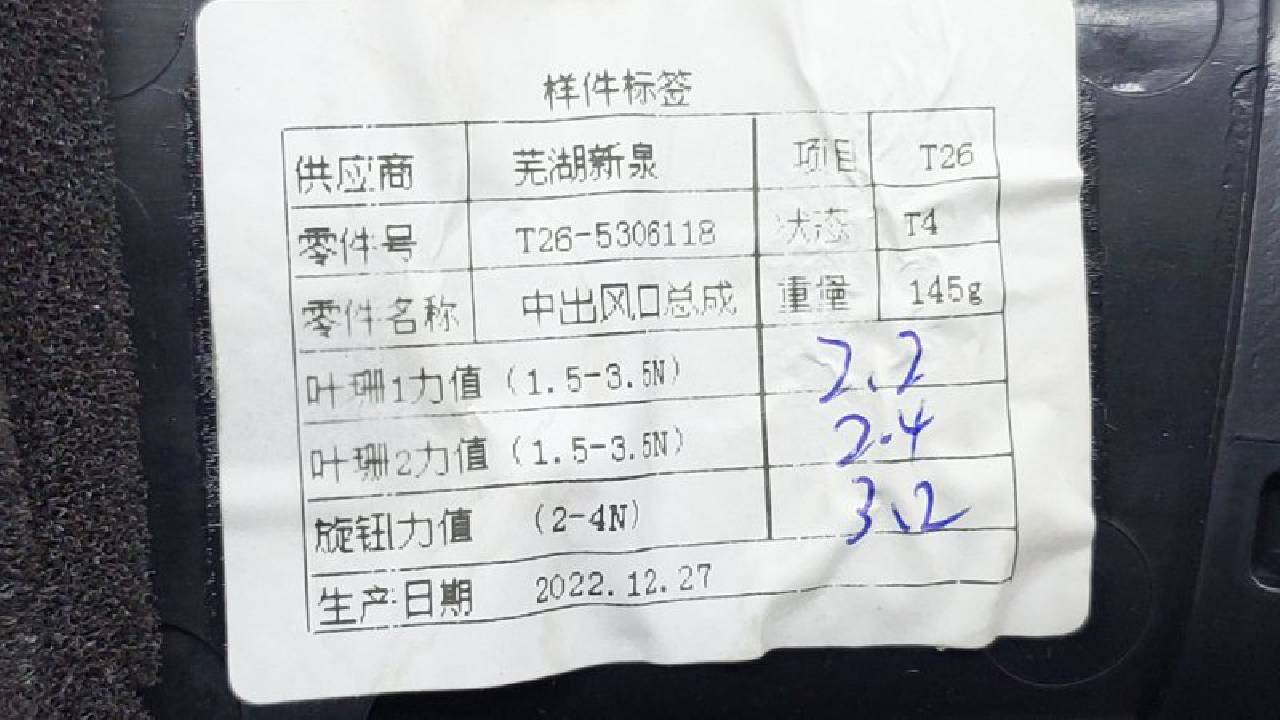 样件标签
供应商 芜湖新泉 项目 T26
零件号 T26-5306118 状态 T4
零件名称 中出风口总成 重量 145g
叶珊1力值（1.5-3.5N） 2.2
叶珊2力值（1.5-3.5N） 2.4
旋钮力值 （2-4N） 3.2
生产日期 2022.12.27